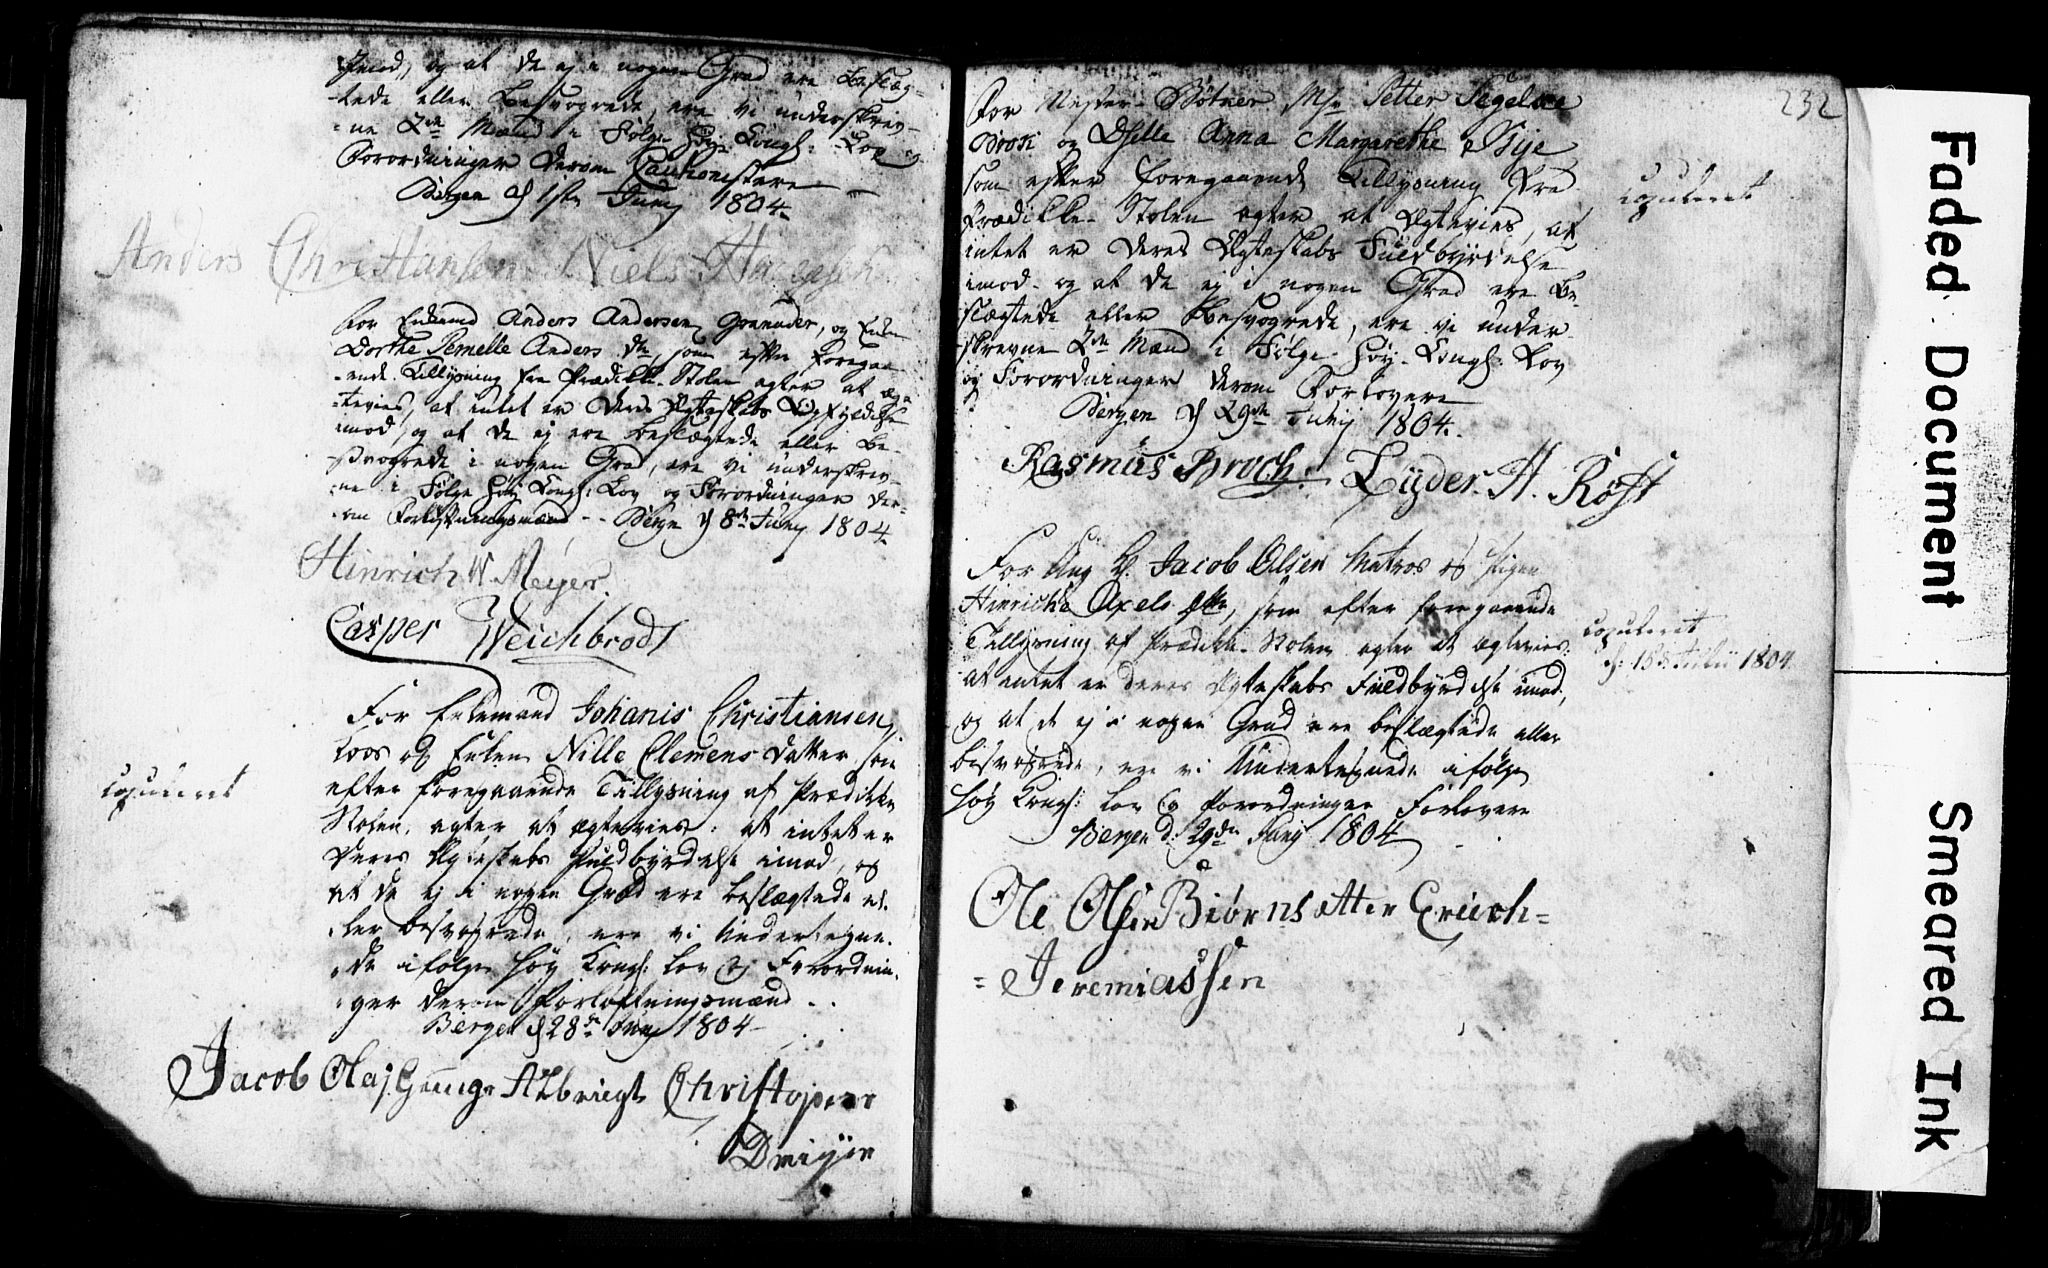 imod, og at de ej i nogen Grad ere beslæg-
-tede eller besvogrede, ere vi underskrev-
-ne 2de Mænd i Følge Høy Kongl: Lov og
Forordninger derom Cautionistere
Bergen d 1ste Junij 1804.
Anders Christiansen Niels
For Enkemd Anders Andersen Granader, og Enken
Dorthe Pernelle Anders dtr, som efter foregaa-
-ende Tillysning fra Prædike-Stolen agter at æg-
-tevies, at intet er Deres Ægteskabs Opfyldelse
imod, og at de ej ere beslægtede eller be-
-svogrede i nogen Grad, ere vi underskrev-
-ne i Følge Høy Kongl: Lov og Forordninger der-
-om Forløftningsmænd - - Bergen d 8de Junij 1804.
Hinrich W. Meyer.
Casper Weichbrodt
For Enkemand Johanis Christiansen
Loos og Enken Nille Clemens Datter, som
efter foregaaende Tillysning af Prædike
Stolen, agter at ægtevies; at intet er
Deres Ægteskabs Fuldbyrdelse imod, og
at de ej i nogen Grad ere beslægtede el-
-ler besvogrede, ere vi Undertegne-
-de ifølge Høy Kongl: Lov og Forordnin-
-ger derom Forløftningsmænd - .
Bergen d 28de Junij 1804
copuleret
Jacob Olas. Ahlbrigt Christoper
Dreijer
232
For Mester-Bøtner Mr Petter Segelcke
Brock og Dselle Anna Margarethe Bije
som efter foregaaende Tillysning fra
Prædikke-Stolen agter at Ægtevies, at
intet er deres Ægteskabs Fuldbyrdelse
imod og at de ej i nogen Grad ere be-
slægtede eller besvogrede, ere vi under-
skrevne 2de Mænd i Følge Høy-Kongl: Lov
og Forordninger derom Forlovere
Bergen d 29de Junij 1804.
copuleret
Rasmus Broch. Lyder. H. Roft
For Ung K. Jacob Olsen Matros og Pigen
Hinriche Axels dtr, som efter foregaaende
Tillysning af Prædike-Stolen agter at ægtevies;
at intet er deres Ægteskabs Fuldbyrdelse imod,
og at de ej i nogen Grad ere beslægtede eller
besvogrede, ere vi Undertegnede ifølge
Høy Kongl: Lov og Forordninger Forlovere
Bergen d: 29de Junij 1804
copuleret
d: 18 Julii 1804
Ole Olsen Biørnsætter Erich-
= Jeremiassen
Faded Document
Smeared Ink